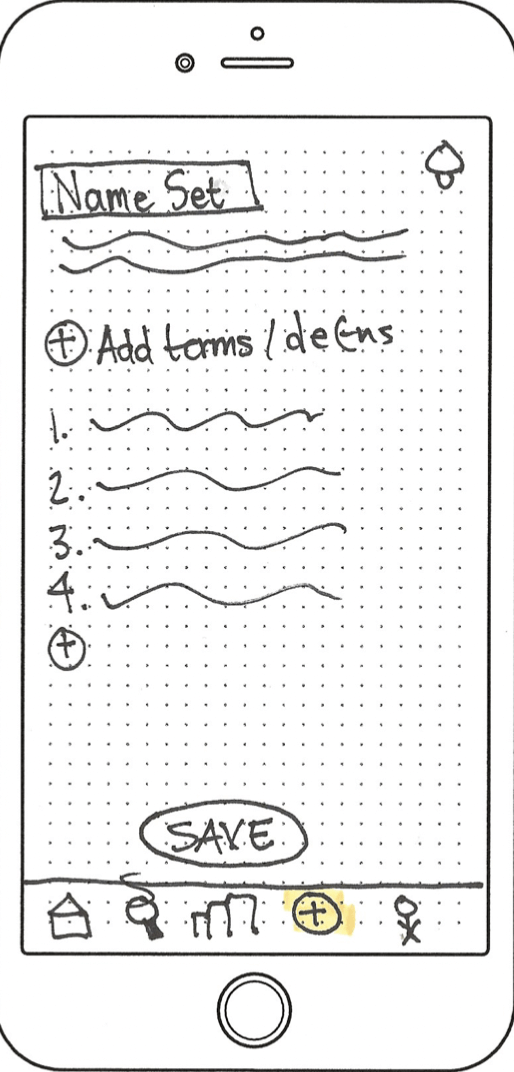 Name Set
+ Add terms / defns
1.
2.
3.
4.
+
SAVE
+